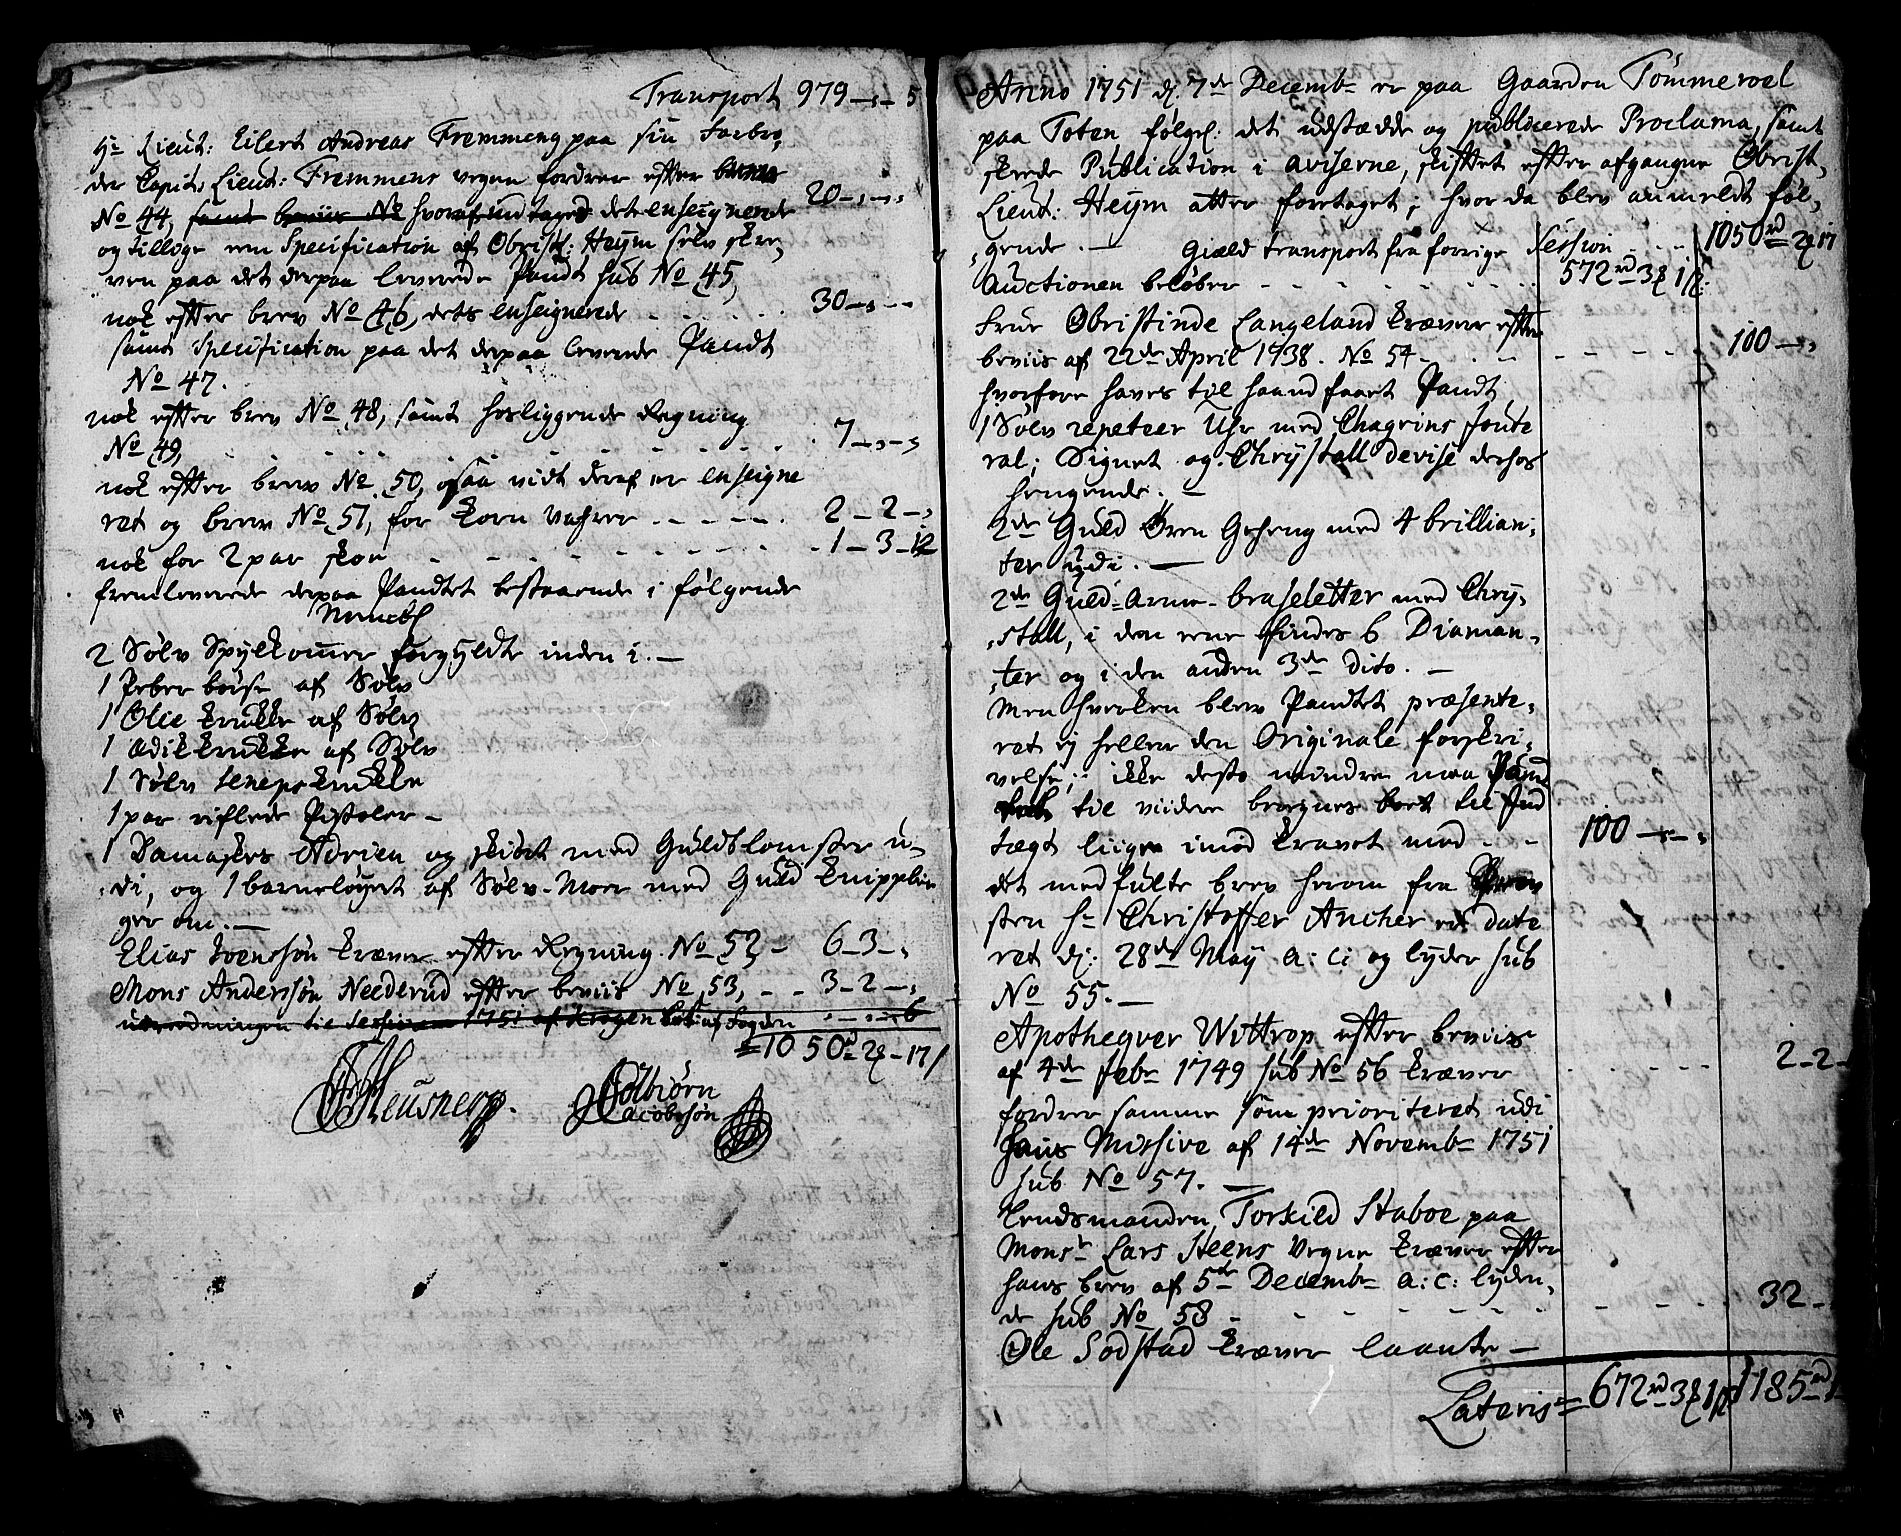 Transport 979 -,- 5
Hr Lieut: Eilert Andreas Fremmeng paa sin Farbro,
der Capit: Lieut: Fremmens vegne fordrer efter
No 44, samt beviis No hvoraf und tages det enseignerede 20 -,-,
og tillige een Specification af Obrist: Heÿm selv skre,
ven paa det derpaa leverede Pandt sub No 45,
nok efter brev No 46, dets enseignerede - - - 30 -,- -
samt Specification paa det derpaa leverede Pandt
No 47.
nok efter brev No 48, samt hosliggende Regning
No 49, - - - 7 -,-,
nok efter brev No 50, saa vidt deraf er enseigne
ret og brev No 51, for Korn Vahrer - - - 2 - 2 -,
nok for 2 par skoe - - - 1 - 3 - 12
fremleverede derpaa Pandtet bestaaende i følgende
Nemebl
2 Sølv Spÿlkommer forgÿldte inden i. -
1 Peber børse af Sølv
1 Olie Krukke af Sølv
1 Ædikkrukke af Sølv
1 Sølv Senepskrukke
1 par riflede Pistoler -
1 Damaskes Adrien og skiørt med Guldblomster u,
,di, og 1 barneløÿert af Sølv-Moer med Guld Knipplin
ger om. -
Elias Svensøn Kræver efter Regning No 52 - 6 - 3 -,
Mons Andersøn Neederud efter beviis No 53, - - 3 - 2 -,
til Sessionen 1751 af Krogen - - 6
= 1050 rd 2 ₰ - 17 /
Heusner
Colbiørn
Jacobsøn
Anno 1751 d. 7de Decembr er paa Gaarden Tømmerøel
paa Toten følgel: det udstædde og publicerede Proclama, samt
skeede Publication i aviserne, skiftet efter afgangne Obrist,
Lieut: Heÿm atter foretaget; hvor da blev anmeldt føl,
,gende. - Gield transport fra forrige Session - - - 1050 rd 2 ₰ 17
Auctionen beløber - - - 572 rd 3 ₰ 1 s:
Frue Obristinde Langeland Kræver efter
beviis af 22de April 1738. No 54 - - - 100 -,-,
hvorfore haves til haand faaet Pandt
1 Sølv repeteer Uhr med Chagrins foute
ral; Signet og Chrÿstall devise derhos
hengende. -
2de Guld Øren Geheng med 4 brillian,
ter udi. -
2de Guld-Arme-braseletter med Chrÿ,
,stall, i den eene findes 6 Diaman,
,ter og i den anden 3de dito. -
Men hverken blev Pandtet præsente,
ret ej heller den Originale forskri,
velse; ikke desto mindre maa Pand
til viidere beregnes bort til Ind
tægt liige imod Kravet med - - 100 -,-,
det medfulte brev herom fra
sten hr Christoffer Ancher er date
ret d: 28de Maÿ a: c: og lÿder sub
No 55. -
Apotheqver Wittrop efter beviis
af 4de febr 1749 sub No 56 Kræver - - - 2 - 2 -
fordrer samme som prioriteret udi
hans Missive af 14de Novembr 1751
sub No 57. -
Lensmanden Torkild Staboe paa
Monsr Lars Steens Vegne Kræver efter
hans brev af 5te Decembr a: c: lÿden,
de sub No 58 - - - 32 -
Ole Sodstad Kræver laante -
Lateris = 672 rd 3 ₰ 1 s 1185 rd 1